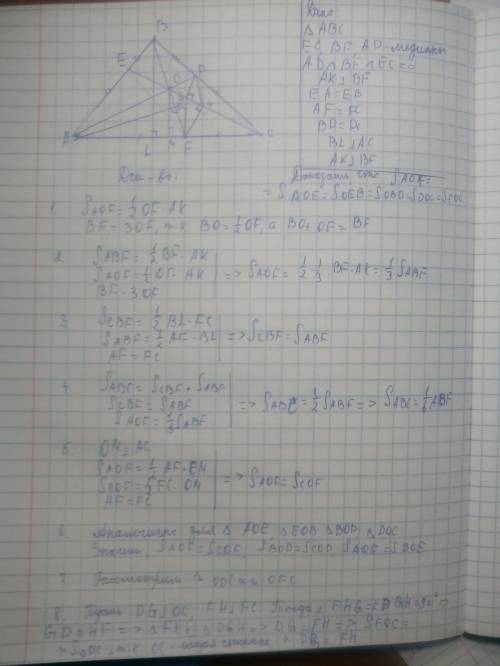 Дано:
Δ ABC
EC, BF, AD - медианы
AD∩BF∩EC=O
AK⊥BF
EA=EB
AF=FC
BD=DC
BL⊥AC
AK⊥BF
Доказать, что S AOF =
= S AOE = S OEB = S OBD = S DOC = S FOC
B
E
D
O
K
A
L
M
F
C
Док-во.
1. S AOF = 1/2 OF · AK
BF = 3OF, т.к. BO = 1/2 OF, а BO + OF = BF
2. S ABF = 1/2 BF · AK
S AOF = 1/2 OF · AK => S AOF = 1/2 · 1/3 · BF · AK = 1/3 S ABF
BF = 3OF
3. S CBF = 1/2 BL · FC
S ABF = 1/2 AF · BL => S CBF = S ABF
AF = FC
4. S ABC = S CBF + S ABF
S CBF = S ABF => S ABC = 1/2 S ABF => S ABC = 1/6 ABF
S AOF = 1/3 S ABF
5. OM⊥AC
S AOF = 1/2 AF · OM
S COF = 1/2 FC · OM => S AOF = S COF
AF = FC
6. Аналогично для Δ AOE, Δ EOB, Δ BOD, Δ DOC
Значит, S AOF = S COF, S BOD = S COD, S AOE = S BOE
7. Рассмотрим Δ ODC и Δ OFC
8. Пусть DG⊥OC, FH⊥FC. Тогда ∠FHG = ∠DGH = 90° =>
GD || HF => => DG = FH => S FOC =
= S ODC, т.к. OC - общая сторона и DG = FH